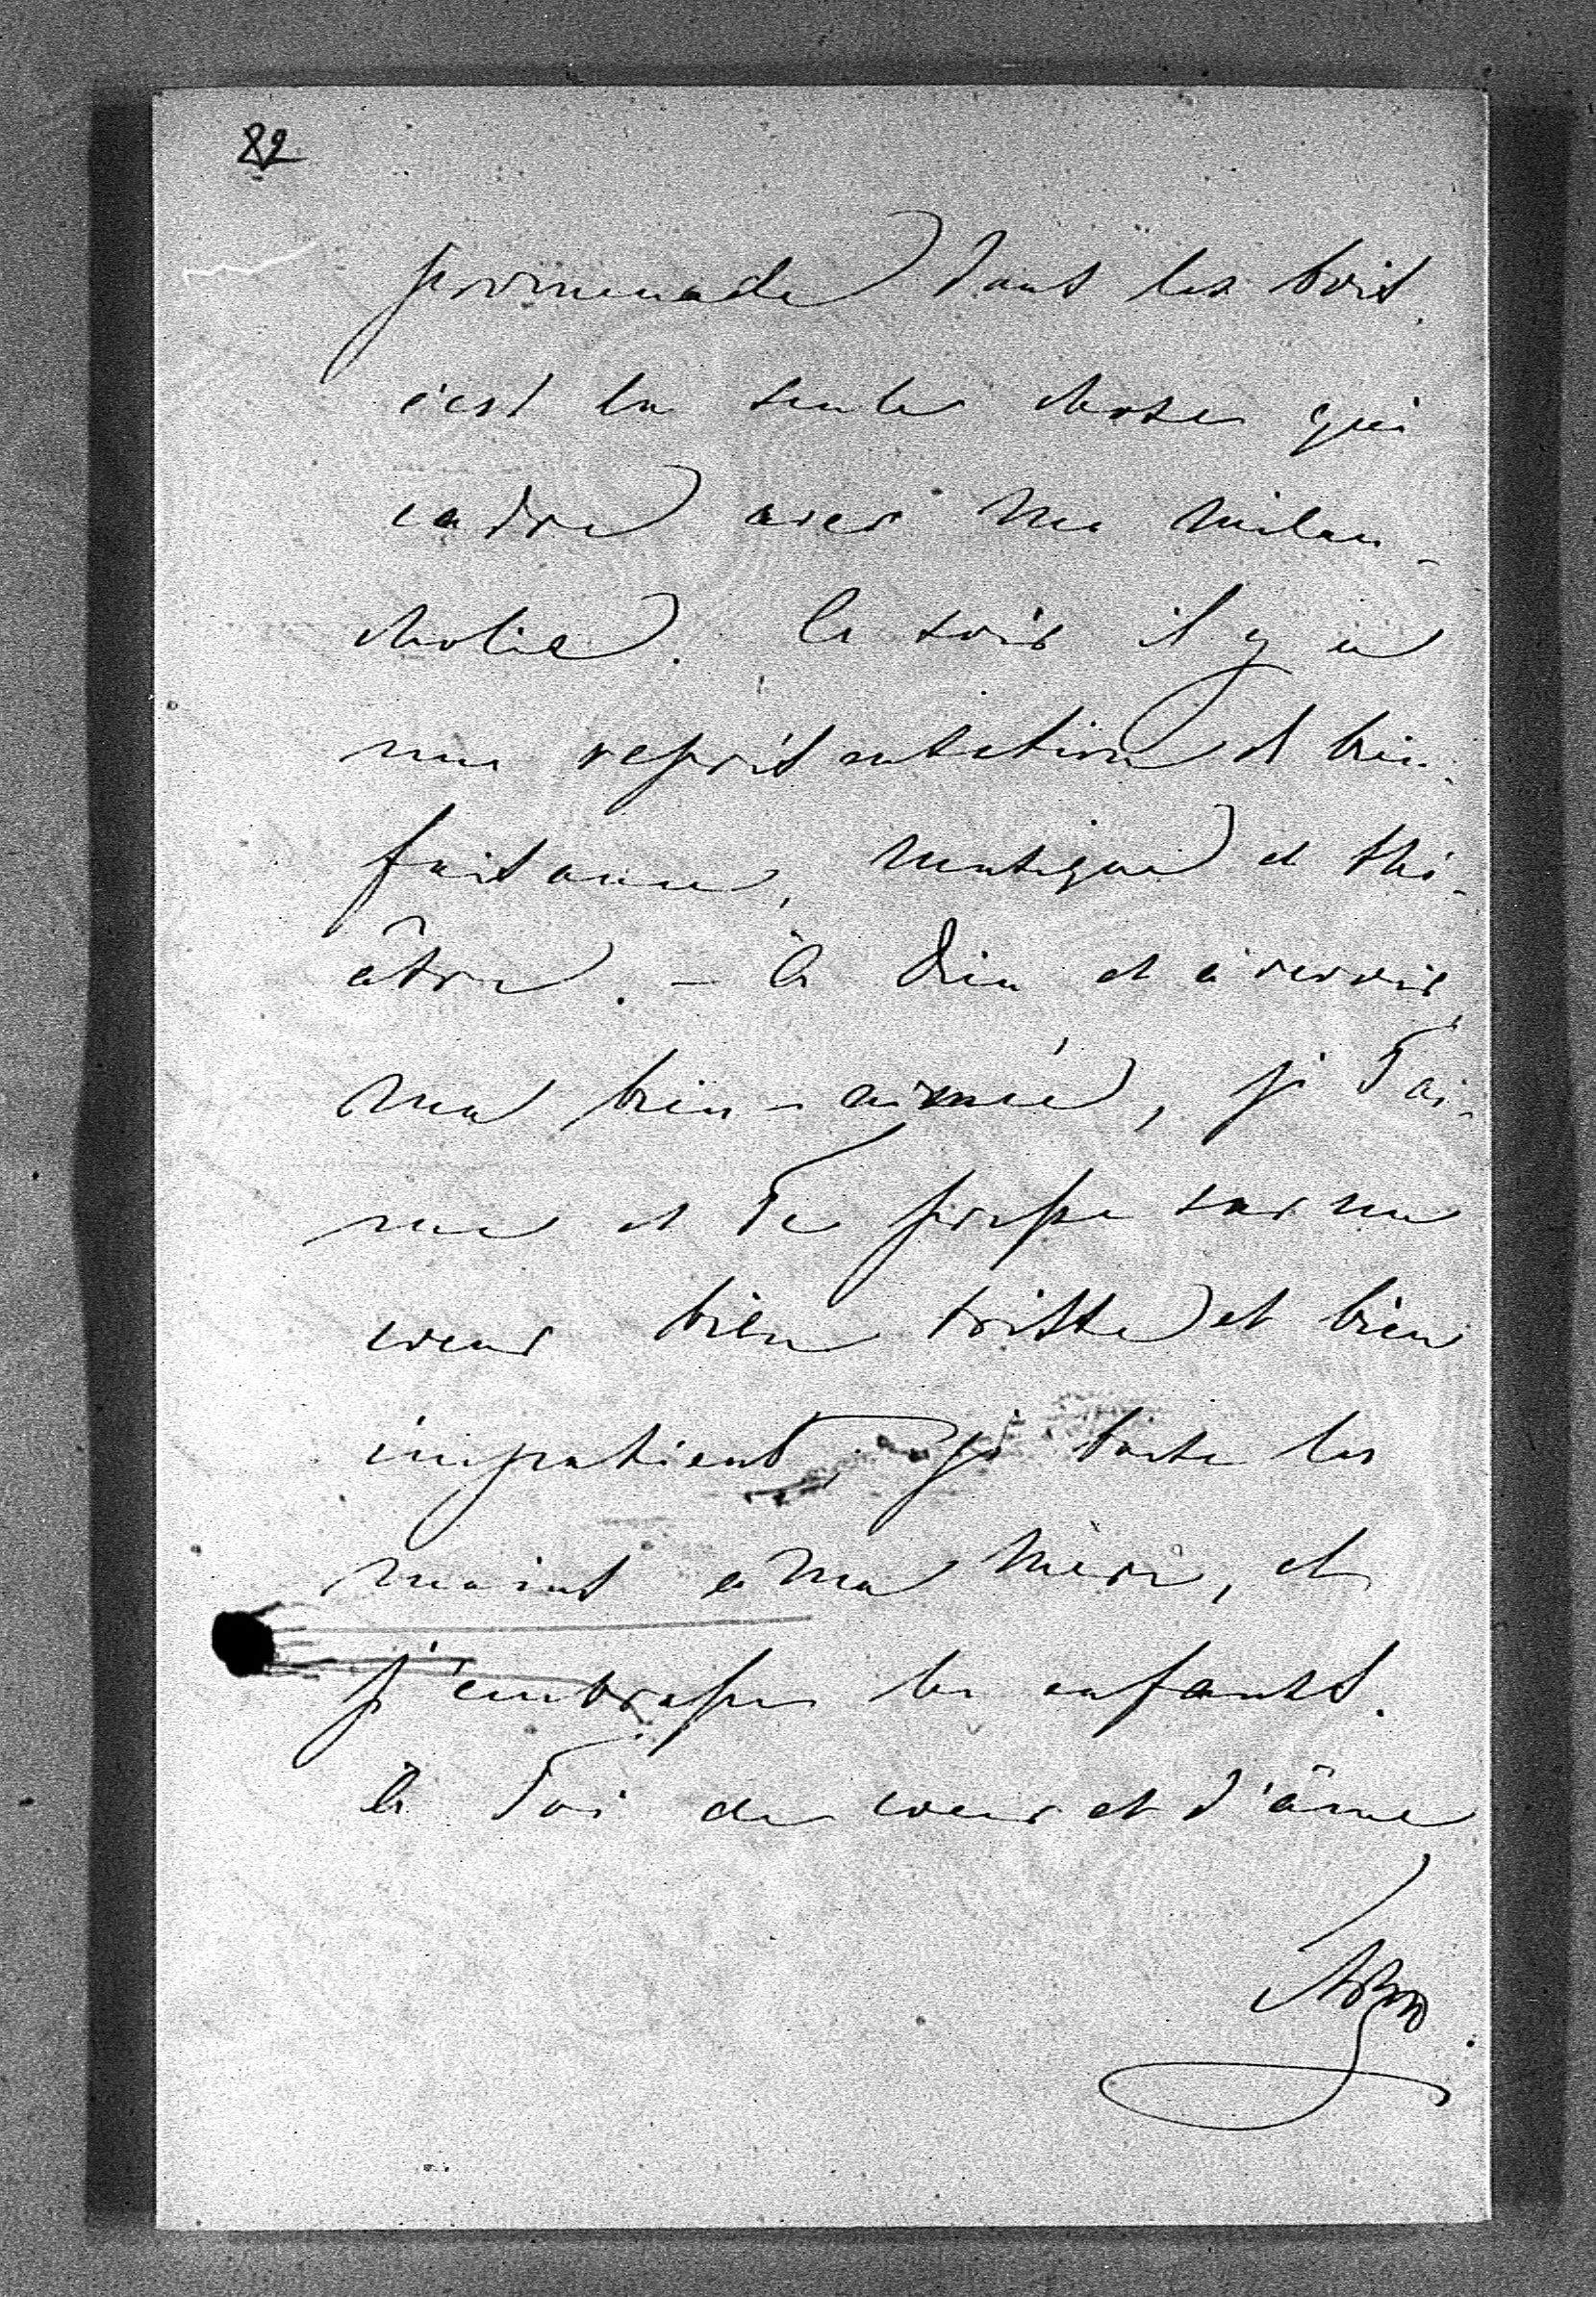 82
promenade dans les bois.
c'est la seule chose qui
cadre avec ma mélan-
cholie. Ce soir il y a
une représentation d bien-
faisance, musique et thé-
âtre. - à Dieu et à revoir,
ma bien-aimée, je T'ai-
me et Te presse sur mon
coeur bien triste et bien
impatient, je baise les
mains à ma mère, et
j'embrasse les enfants.
à Toi de coeur et d'âme